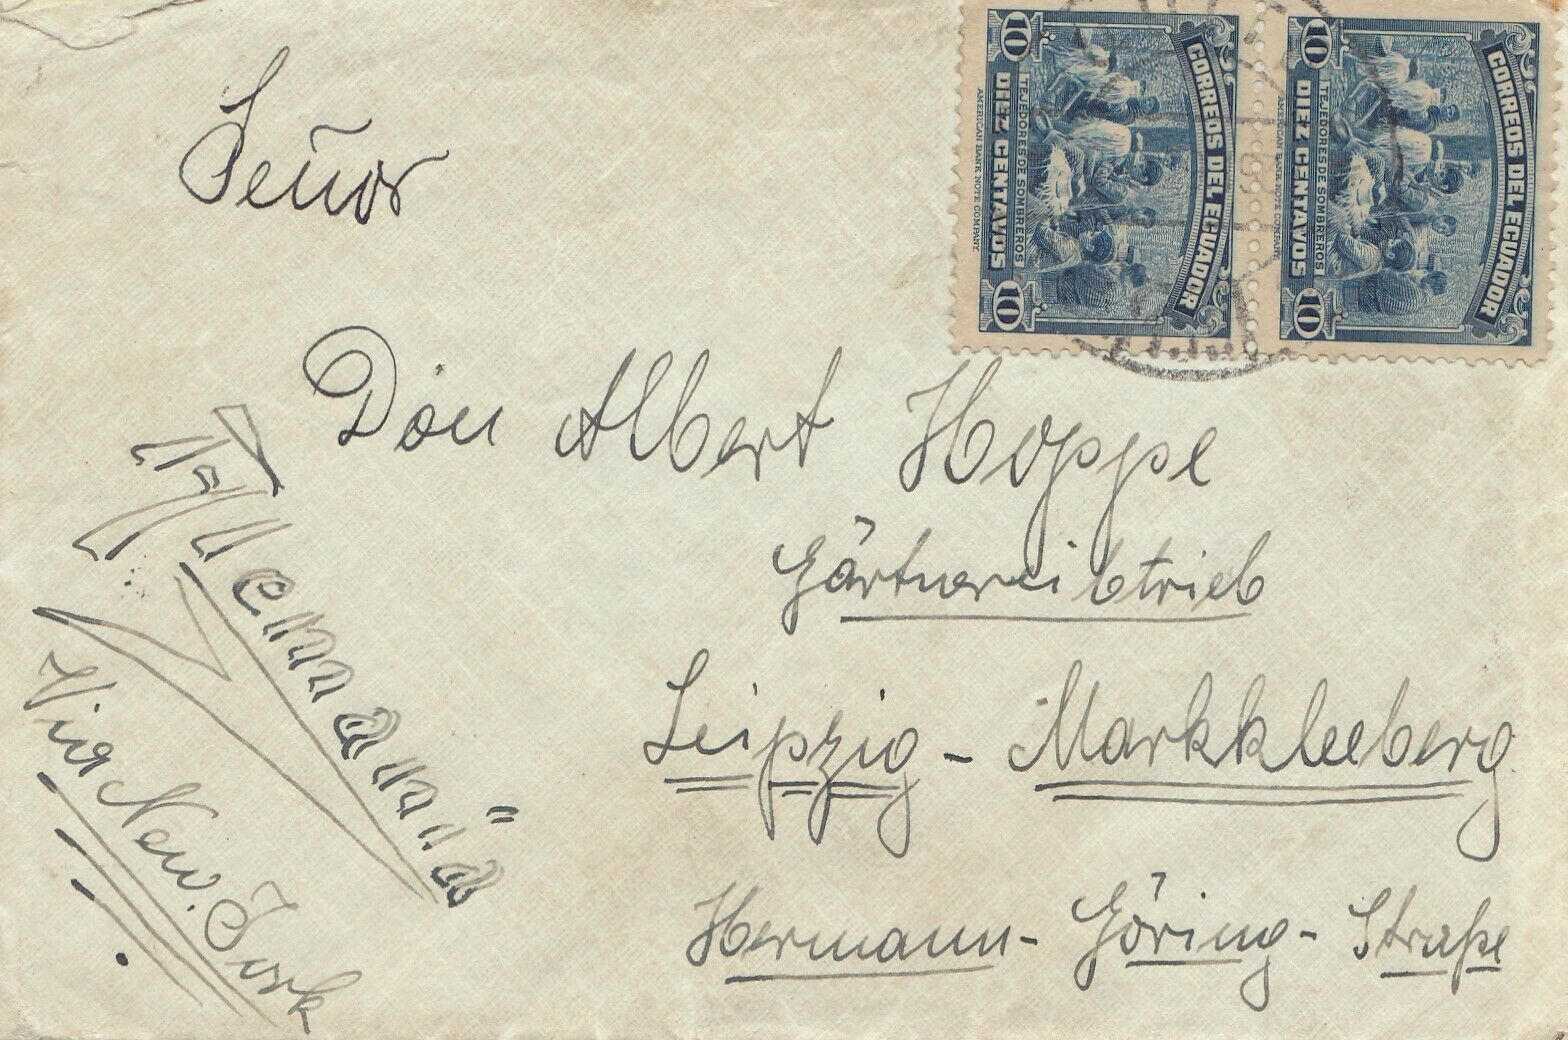 Señor
Don Albert Hoppe
Gärtnereibtrieb
Leipzig - Markkleeberg
Hermann- Göring- Straße
Alemania
Via New. York
CORREOS DEL ECUADOR
TEJEDORES DE SOMBREROS
10 DIEZ CENTAVOS 10
AMERICAN BANK NOTE COMPANY.
CORREOS DEL ECUADOR
TEJEDORES DE SOMBREROS
10 DIEZ CENTAVOS 10
AMERICAN BANK NOTE COMPANY.